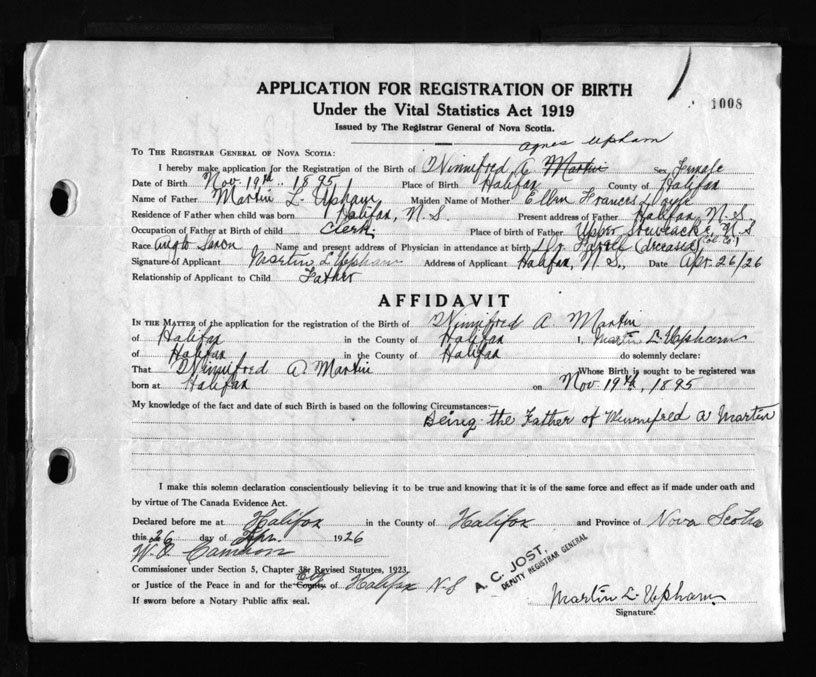 APPLICATION FOR REGISTRATION OF BIRTH
1008
Under the Vital Statistics Act 1919
Issued by The Registrar General of Nova Scotia.
Agnes Upham
TO THE REGISTRAR GENERAL OF NOVA SCOTIA:
I hereby make application for the Registration of the Birth of Winnifred A. Martin Sex Female
Date of Birth Nov. 19th 1895 Place of Birth Halifax County of Halifax
Name of Father Martin L. Upham Maiden Name of Mother Ellen Frances
Residence of Father when child was born Halifax, N.S. Present address of Father Halifax, N.S.
Occupation of Father at Birth of child Clerk Place of birth of Father Upper Stewiacke, N.S.
(Col. Co.)
Race Anglo Saxon Name and present address of Physician in attendance at birth Dr. (deceased)
Signature of Applicant Martin L Upham Address of Applicant Halifax, N.S., Date Apr. 26/26
Relationship of Applicant to Child Father
AFFIDAVIT
IN THE MATTER of the application for the registration of the Birth of Winnifred A. Martin
of Halifax in the County of Halifax I, Martin L. Upham
of Halifax in the County of Halifax do solemnly declare:
That Winnifred A. Martin Whose Birth is sought to be registered was
born at Halifax on Nov. 19th, 1895
My knowledge of the fact and date of such Birth is based on the following Circumstances:—
Being the Father of Winnifred A Martin
I make this solemn declaration conscientiously believing it to be true and knowing that it is of the same force and effect as if made under oath and
by virtue of The Canada Evidence Act.
Declared before me at Halifax in the County of Halifax and Province of Nova Scotia
this 26 day of Apr. 1926
W. O. Cameron
Commissioner under Section 5, Chapter 38, Revised Statutes, 1923,
or Justice of the Peace in and for the County City of Halifax N.S
If sworn before a Notary Public affix seal.
A. C. JOST,
DEPUTY REGISTRAR GENERAL
Martin L. Upham
Signature.